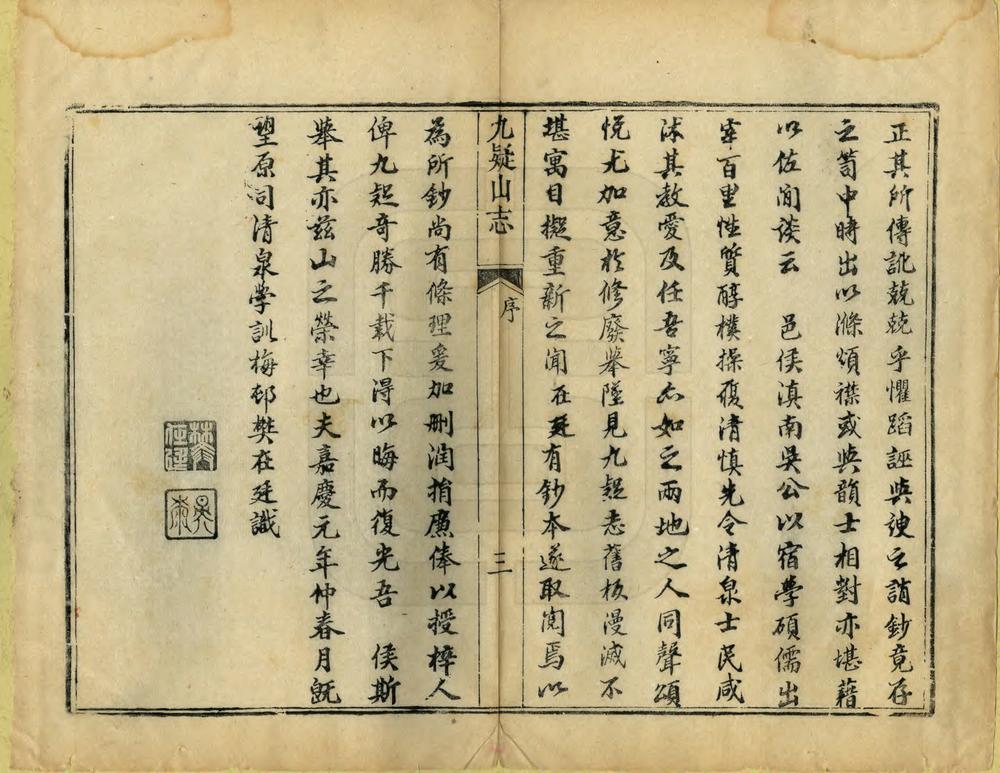 正其所傳訛兢兢乎懼蹈誣與諛之誚鈔竟存
之笥中時出以滌煩襟或與韻士相對亦堪藉
以佐閒談云　邑侯滇南吳公以宿學碩儒出
宰百里性質醇樸操履清慎先令清泉士民咸
沐其教愛及任吾寧亦如之兩地之人同聲頌
悅尤加意於修廢舉墜見九疑志舊板漫滅不
堪寓目擬重新之聞在廷有鈔本遂取閱焉以
九疑山志　序　三
為所鈔尚有條理爰加刪潤捐廉俸以授梓人
俾九疑奇勝千載下得以晦而復光吾　侯斯
舉其亦茲山之榮幸也夫嘉慶元年仲春月旣
望原司清泉學訓梅邨樊在廷識
樊在廷